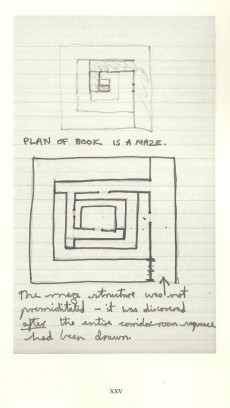 PLAN OF BOOK IS A MAZE.
The maze structure was not
premiditated – it was discovered
after the entire corridor-room sequence
had been drawn
xxv